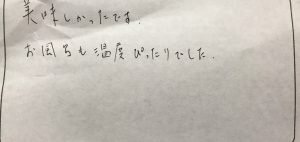 美味しかったです.
お風呂も温度ぴったりでした.